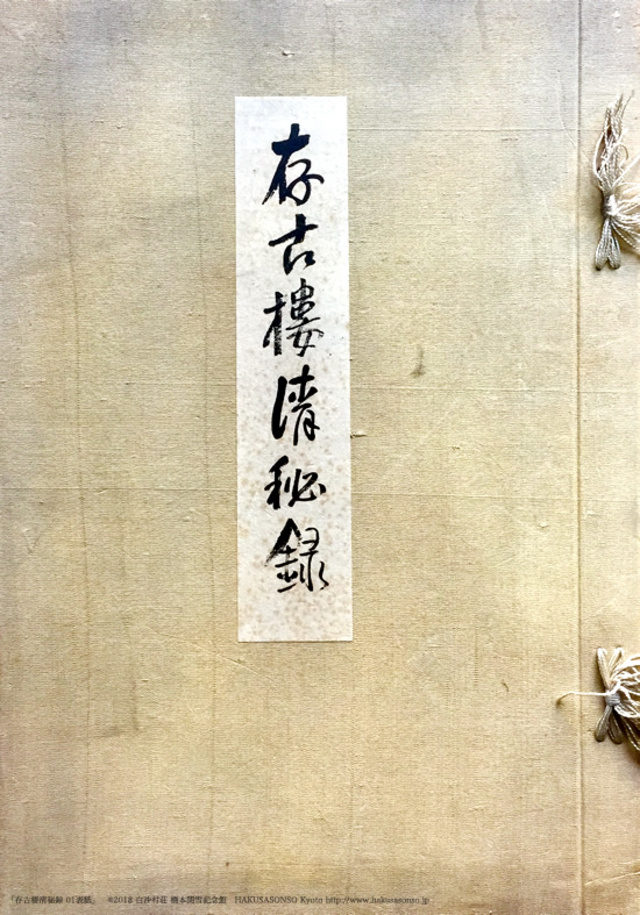 存古樓清秘録
『存古樓清秘録 01表紙』 ©2018 白沙村荘 橋本関雪記念館 HAKUSASONSO Kyoto http://www.hakusasonso.jp